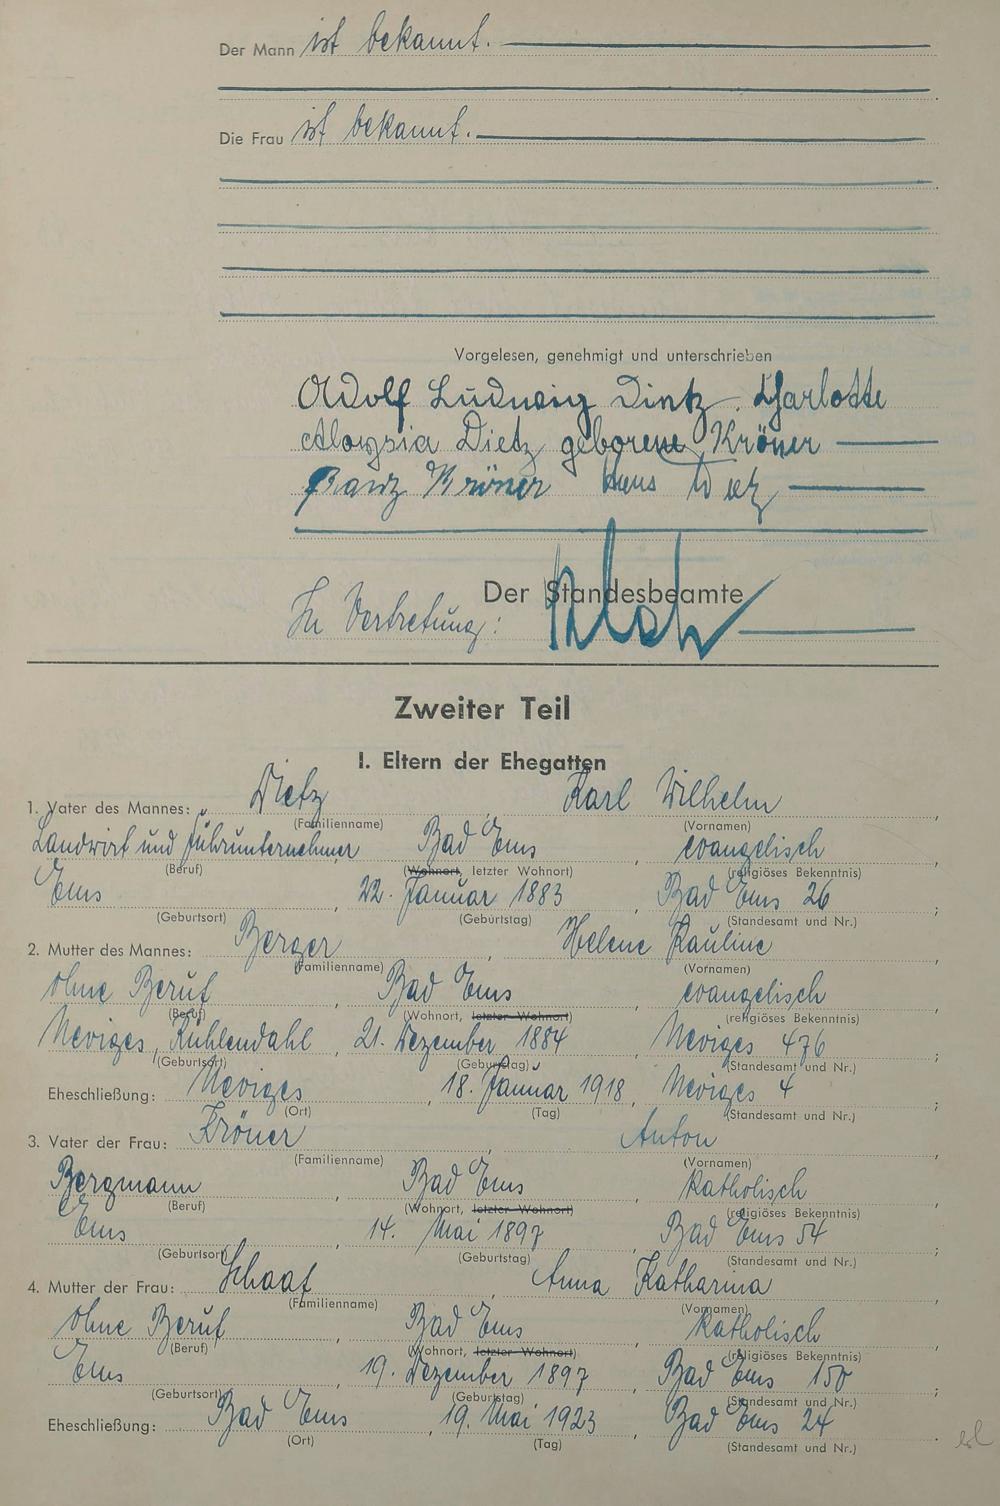 Der Mann ist bekannt.
Die Frau ist bekannt.
Vorgelesen, genehmigt und unterschrieben
Adolf Ludwig Dietz. Charlotte
Aloysia Dietz geborene Kröner
Franz Kröner Hans Dietz
Der Standesbeamte
In Vertretung:
Zweiter Teil
I. Eltern der Ehegatten
1. Vater des Mannes: Dietz Karl Wilhelm,
(Familienname) (Vornamen)
Landwirt und Fuhrunternehmer Bad Ems, evangelisch,
(Beruf) (Wohnort, letzter Wohnort) (religiöses Bekenntnis)
Ems, 22. Januar 1883, Bad Ems 26;
(Geburtsort) (Geburtstag) (Standesamt und Nr.)
2. Mutter des Mannes: Berger, Helene Pauline,
(Familienname) (Vornamen)
ohne Beruf, Bad Ems, evangelisch,
(Beruf) (Wohnort, letzter Wohnort) (religiöses Bekenntnis)
Neviges, Kuhlendahl, 21. Dezember 1884, Neviges 476;
(Geburtsort) (Geburtstag) (Standesamt und Nr.)
Eheschließung: Neviges, 18. Januar 1918, Neviges 4;
(Ort) (Tag) (Standesamt und Nr.)
3. Vater der Frau: Kröner, Anton,
(Familienname) (Vornamen)
Bergmann, Bad Ems, katholisch,
(Beruf) (Wohnort, letzter Wohnort) (religiöses Bekenntnis)
Ems, 14. Mai 1897, Bad Ems 54;
(Geburtsort) (Geburtstag) (Standesamt und Nr.)
4. Mutter der Frau: Schaaf, Anna Katharina,
(Familienname) (Vornamen)
ohne Beruf, Bad Ems, katholisch,
(Beruf) (Wohnort, letzter Wohnort) (religiöses Bekenntnis)
Ems, 19. Dezember 1897, Bad Ems 150;
(Geburtsort) (Geburtstag) (Standesamt und Nr.)
Eheschließung: Bad Ems, 19. Mai 1923, Bad Ems 24.
(Ort) (Tag) (Standesamt und Nr.)